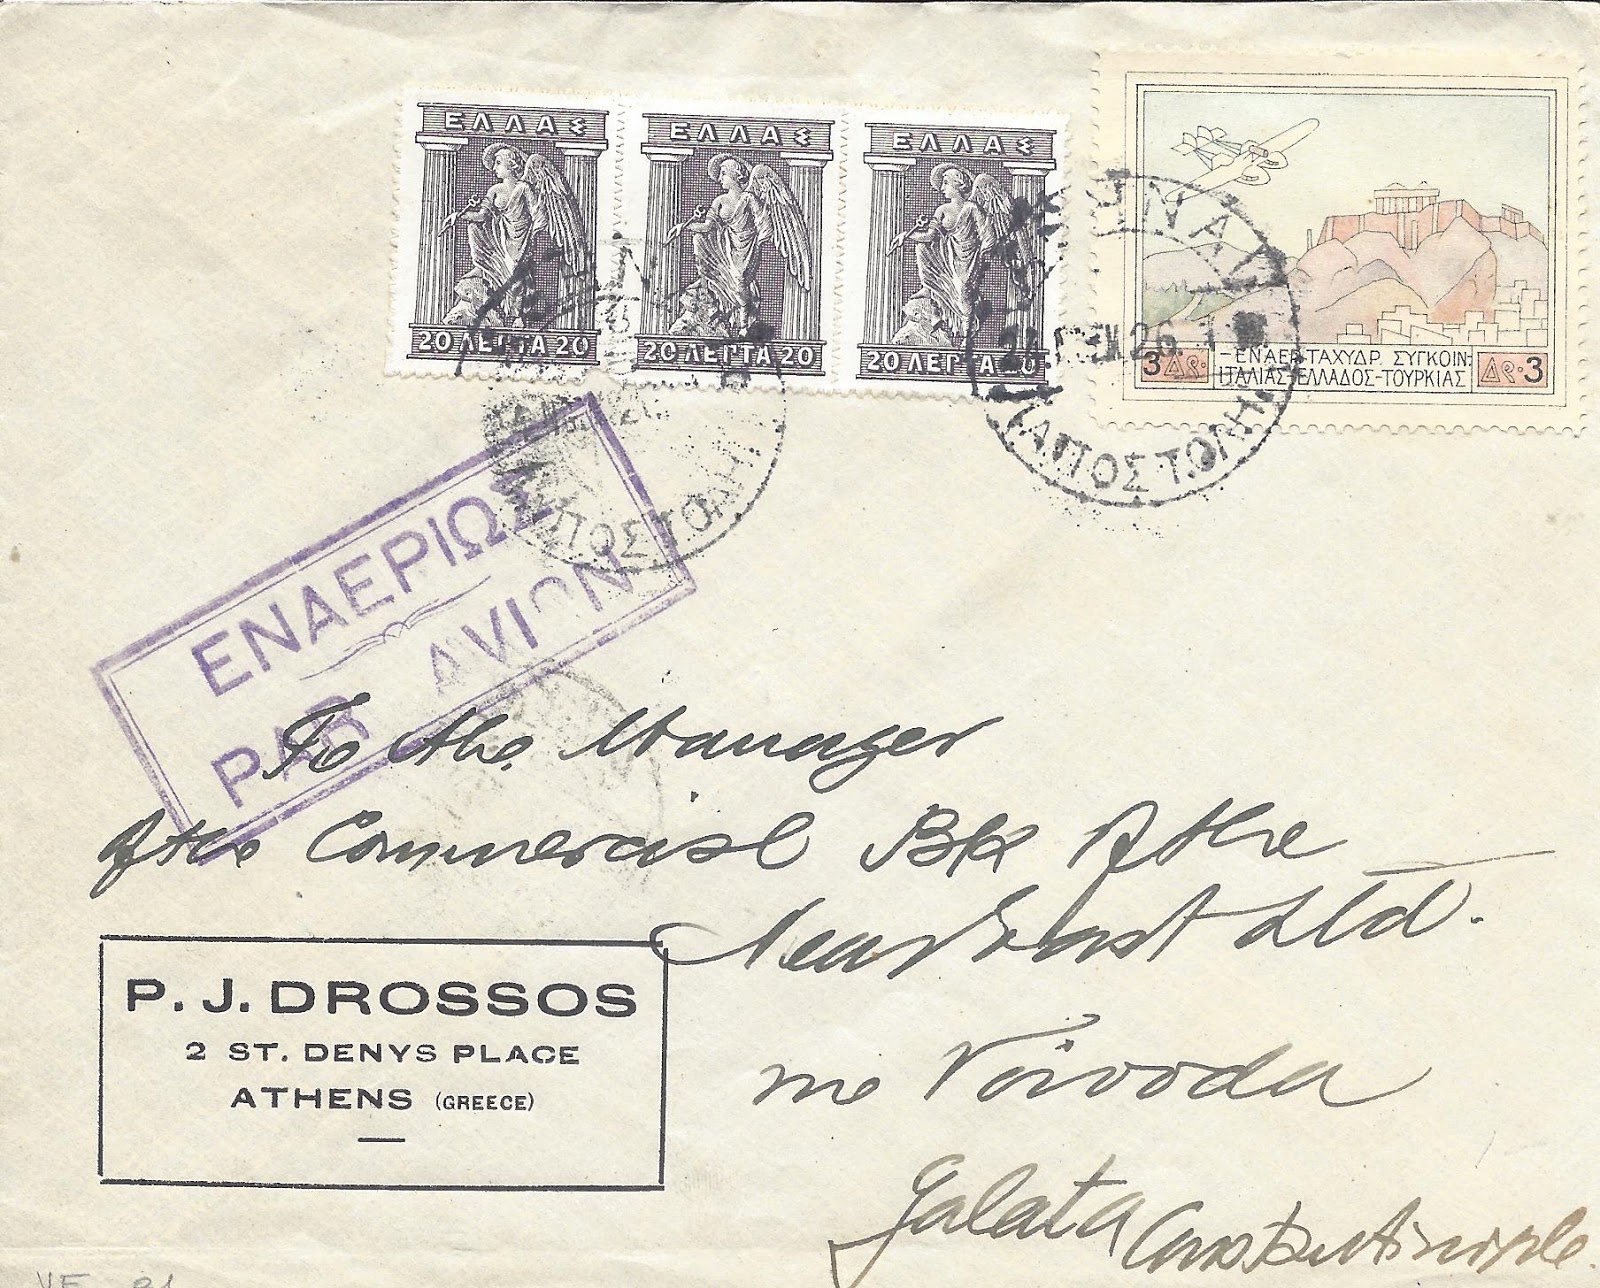 ΕΛΛΑΣ
20 ΛΕΠΤΑ 20
ΕΛΛΑΣ
20 ΛΕΠΤΑ 20
ΕΛΛΑΣ
20 ΛΕΠΤΑ 20
3 Δρ.
-ΕΝΑΕΡ. ΤΑΧΥΔΡ. ΣΥΓΚΟΙΝ-
ΙΤΑΛΙΑΣ-ΕΛΛΑΔΟΣ-ΤΟΥΡΚΙΑΣ
Δρ. 3
ΑΘΗΝΑΙ
26
ΑΠΟΣΤΟΛΗ
ΑΠΟΣΤΟΛΗ
ΕΝΑΕΡΙΩΣ
PAR AVION
To the Manager
of the Commercial Bk of the
Near East Ltd.
P. J. DROSSOS
2 ST. DENYS PLACE
ATHENS (GREECE)
Voivoda
Galata Constantinople.